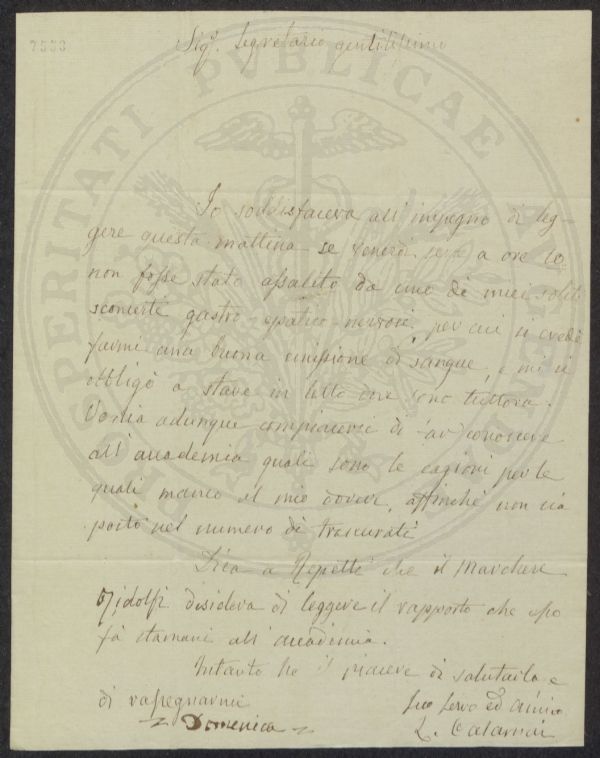 7553
Sig.r Segretario gentilissimo
Io soddisfaceva all'impegno di leg-
gere questa mattina se Venerdì sera a ore 10
non fosse stato assalito da uno de miei soliti
sconcerti gastro-epatico-nervosi, per cui si credè
farmi una buona emissione di sangue, e mi si
obbligò a stare in letto ove sono tuttora.
Voglia adunque compiacersi di far conoscere
all'accademia quali sono le cagioni per le
quali manco al mio dovere, affinchè non sia
posto nel numero di trascurati
Dica a Repetti che il Marchese
Ridolfi desidera di leggere il rapporto che
fa stamani all'accademia.
Intanto ho il piacere di salutarla e
di rassegnarmi
Suo servo ed amico
Domenica
L.
PROSPERITATI PUBLICAE AUGENDAE